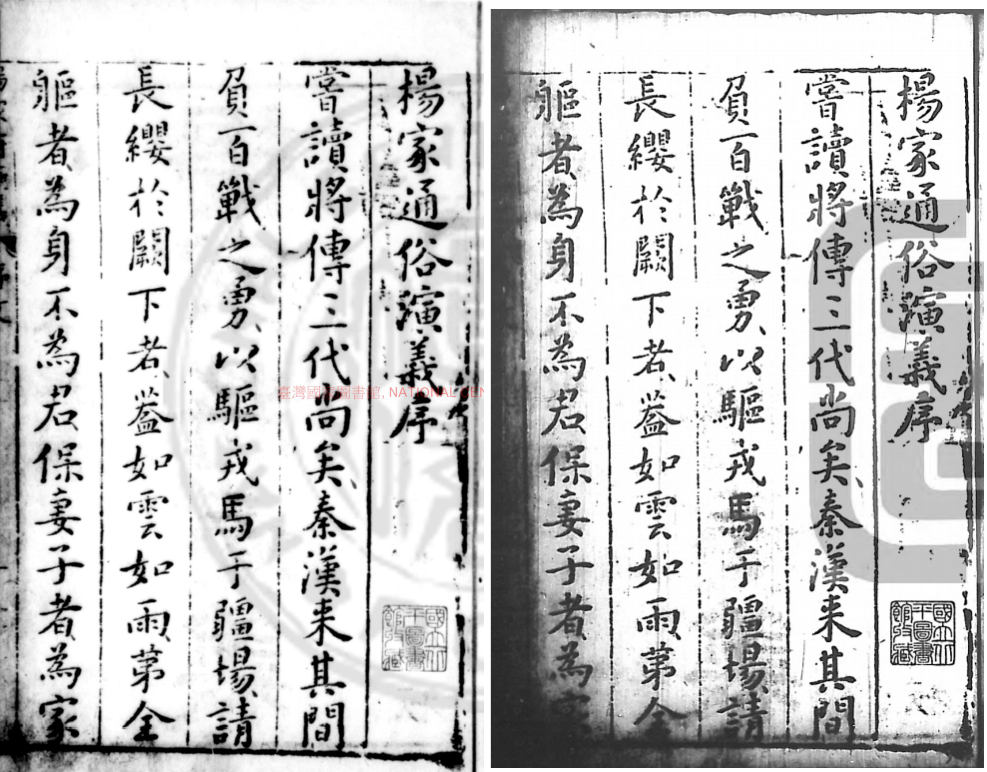 楊家通俗演義序
嘗讀將傳三代尚矣秦漢来其間
負百戰之勇以驅戎馬于疆場請
長纓於闕下者蓋如雲如雨第全
軀者為身不為君保妻子者為家
國立北
平圖書
館收藏
臺灣國家圖書館, NATIONAL CEN
楊家通俗演義序
嘗讀將傳三代尚矣秦漢来其間
負百戰之勇以驅戎馬于疆場請
長纓於闕下者蓋如雲如雨第全
軀者為身不為君保妻子者為家
國立北
平圖書
館收藏